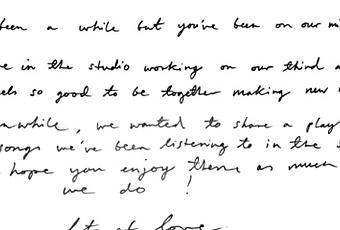 been a while but you've been on our mi
e in the studio working on our third a
els so good to be together making new
nwhile, we wanted to share a play
songs we've been listening to in the s
hope you enjoy them as much
we do !
lots of love